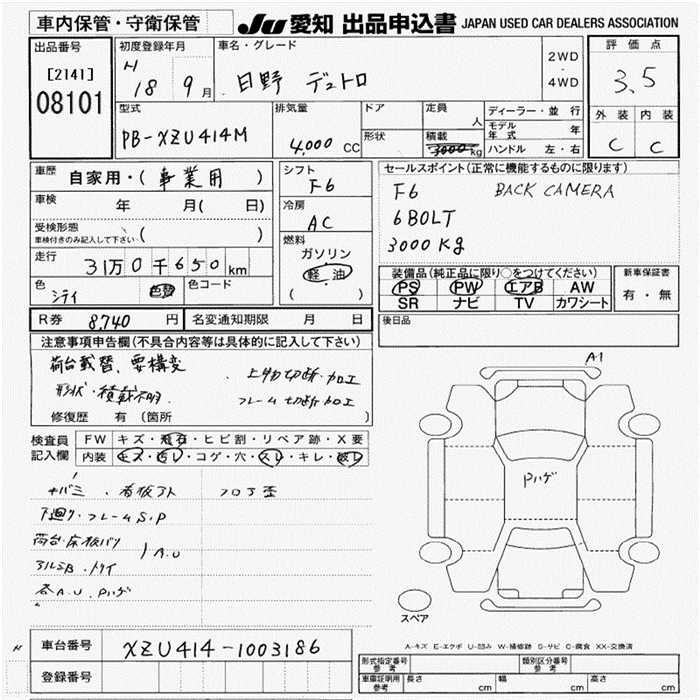 車内保管・守衛保管
JU 愛知 出品申込書 JAPAN USED CAR DEALERS ASSOCIATION
出品番号
[2141]
08101
初度登録年月
H 18 9月
車名・グレード
日野 デュトロ
2WD
・
4WD
評価点
3.5
外装 内装
C C
型式
PB-XZU414M
排気量
4,000 CC
ドア
形状
定員
人
積載
3000kg
ディーラー・並行
モデル年式 年
ハンドル 左・右
車歴
自家用・( 事業用 )
車検 年 月( 日)
受検形態
車検付きのみ記入して下さい ( )
走行
31万0千650km
色
シティ 色替
色コード
シフト
F6
冷房
AC
燃料
ガソリン
軽油
( )
セールスポイント(正常に機能するものに限ります)
F6 BACK CAMERA
6BOLT
3000Kg
装備品(純正品に限り○をつけてください)
PS PW エアB AW
SR ナビ TV カワシート
新車保証書
有・無
R券 8,740 円
名変通知期限 月 日
後日品
注意事項申告欄(不具合内容等は具体的に記入して下さい)
荷台載替、要構変
上物切断・加工
形状・積載不明
フレーム切断加工
修復歴 有 (箇所
検査員
記入欄
FW キズ・飛石・ヒビ割・リペア跡・X要
内装 キズ・汚レ・コゲ・穴・スレ・キレ・破レ
サバミ ・看板アト フロア歪
下廻り・フレームS,P
荷台・床板バリ
A.U
アルミB・トリイ
各A.U.Pハゲ
A1
Pハゲ
スペア
A-キズ E-エクボ U-凹み W-補修跡 S-サビ C-腐食 XX-交換済
H
車台番号
XZU414-1003186
登録番号
形式指定番号
参考
類別区分番号
参考
車庫証明用
参考
長さ cm 幅 cm 高さ cm